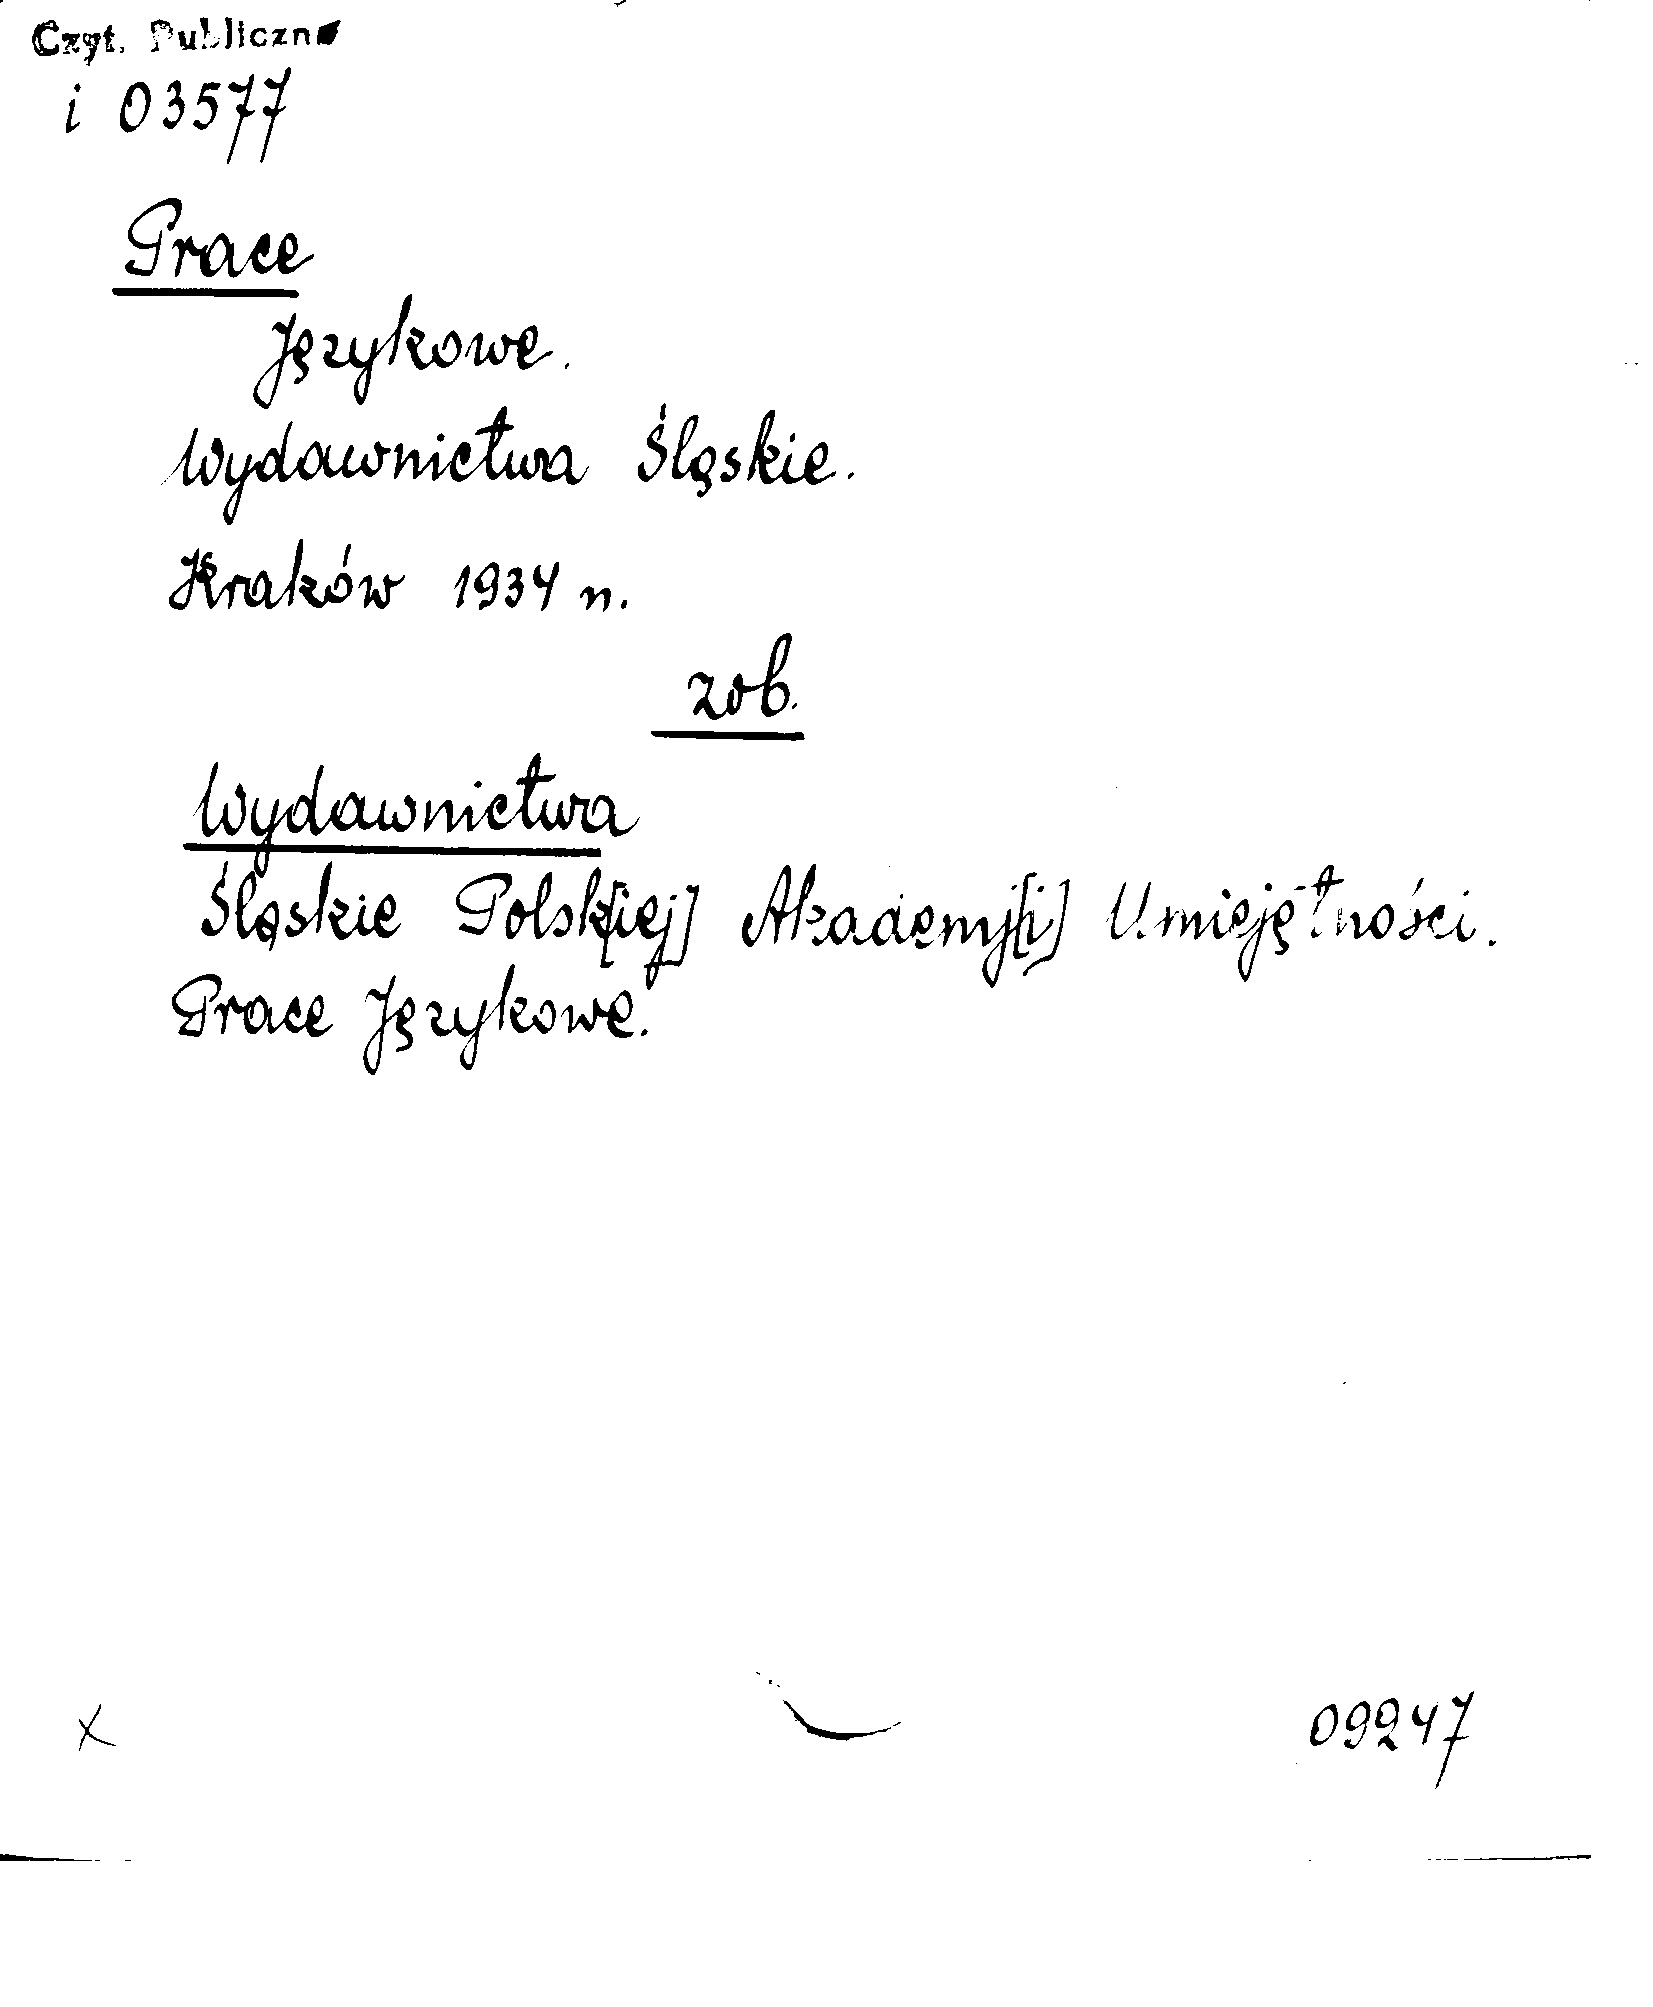 Czyt. Publiczna
i 03577
Prace
Językowe.
Wydawnictwa Śląskie.
Kraków 1934 n.
zob.
Wydawnictwa
Śląskie Polsk[iej] Akademj[i] Umiejętności.
Prace Językowe.
x
09247